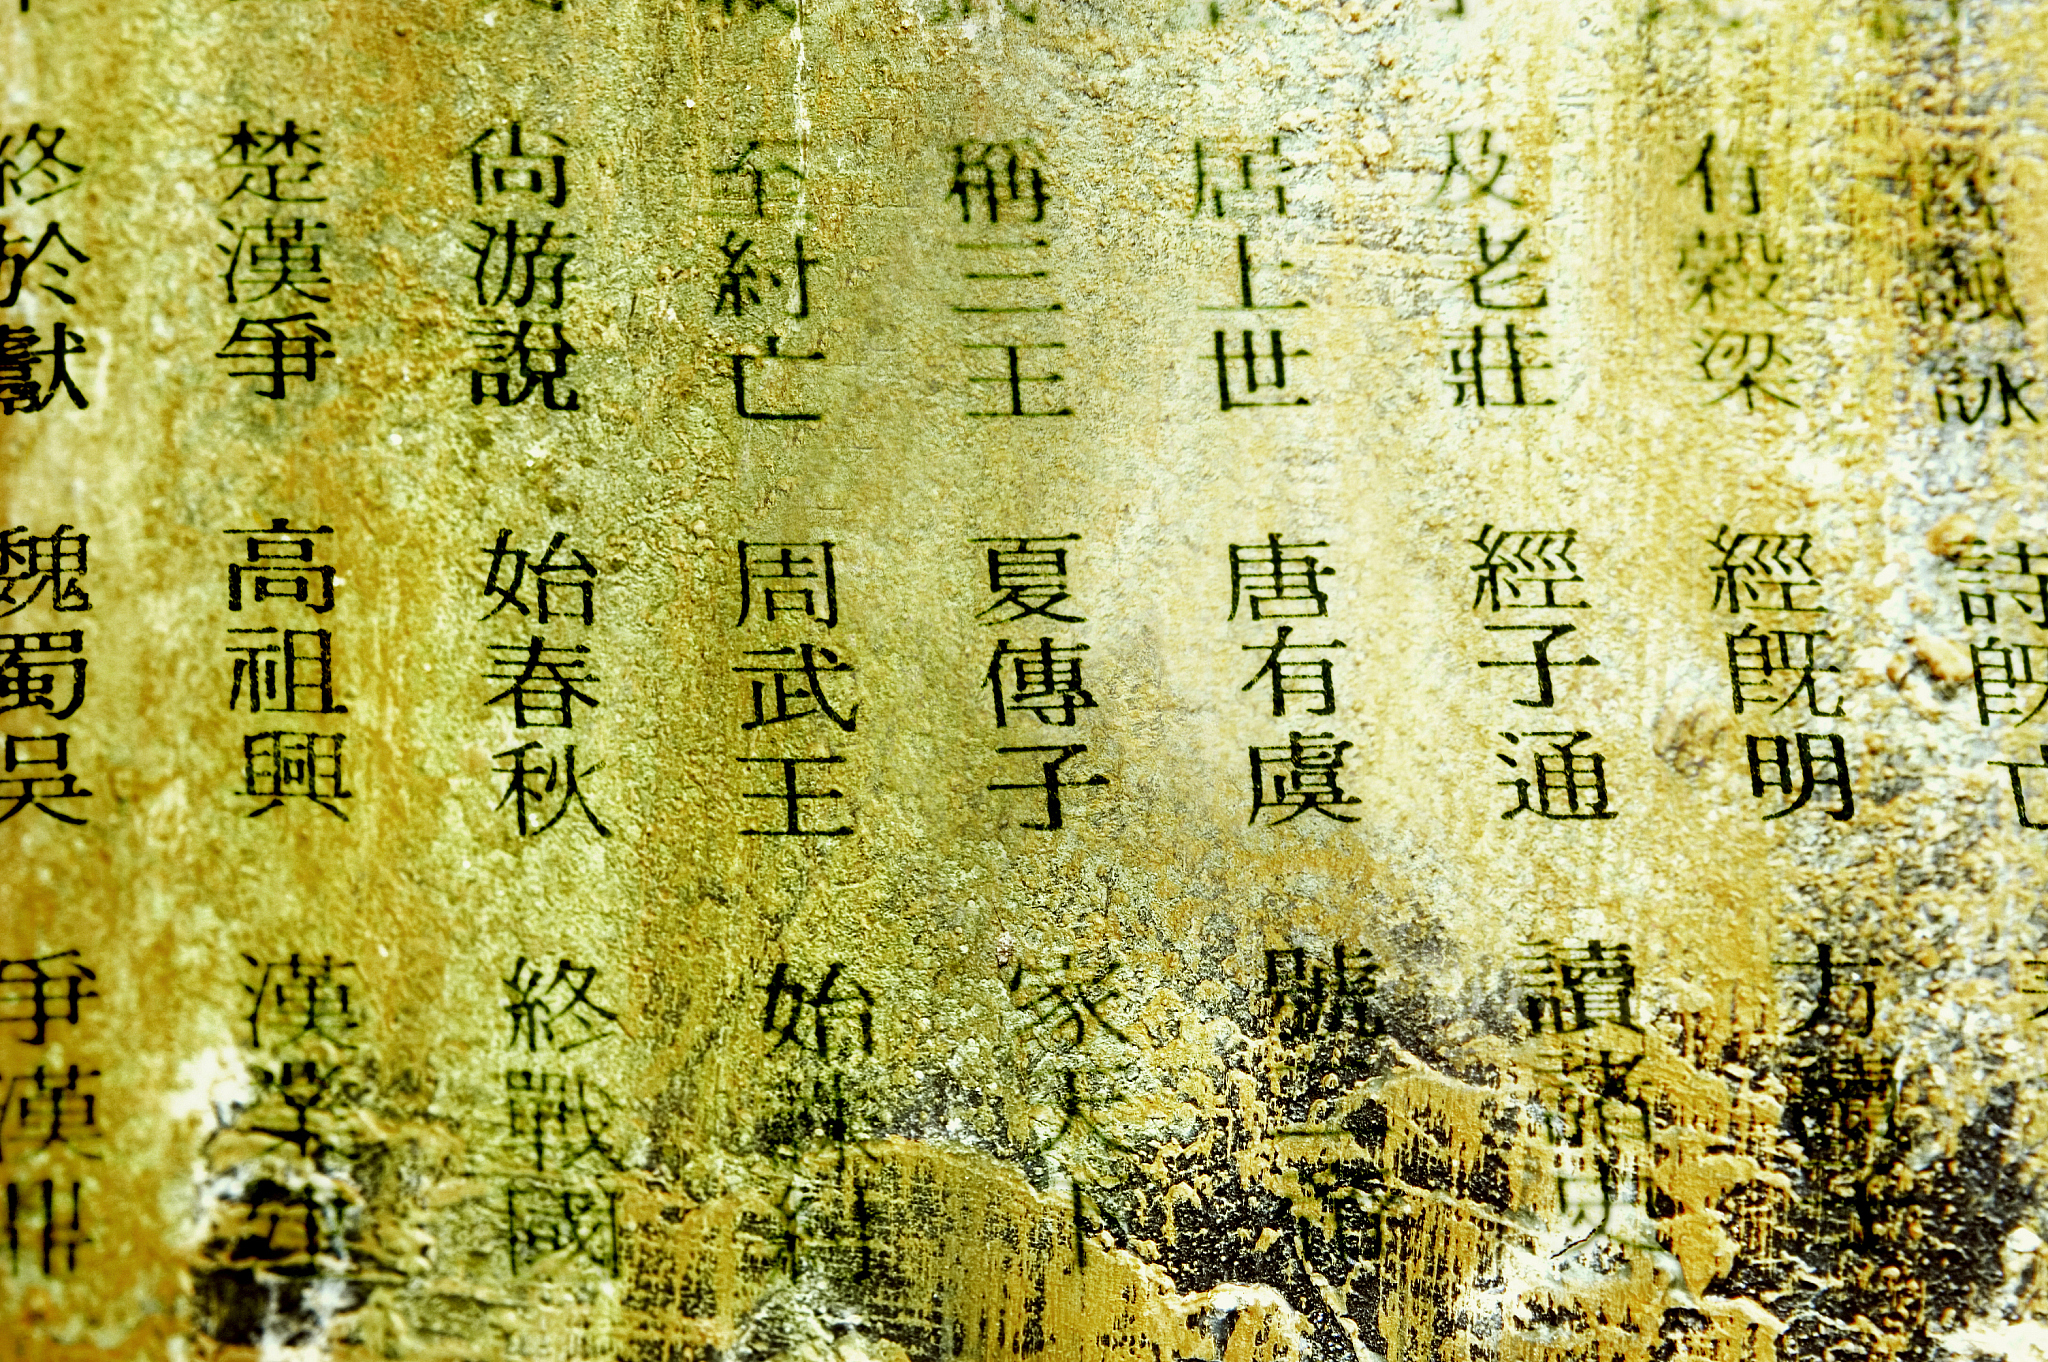 諷詠 詩既亡
有穀梁 經既明 方讀
及老莊 經子通 讀諸史
居上世 唐有虞 號二帝
稱三王 夏傳子 家天下
至紂亡 周武王 始誅紂
尚游說 始春秋 終戰國
楚漢爭 高祖興 漢業
終於獻 魏蜀吳 爭漢鼎